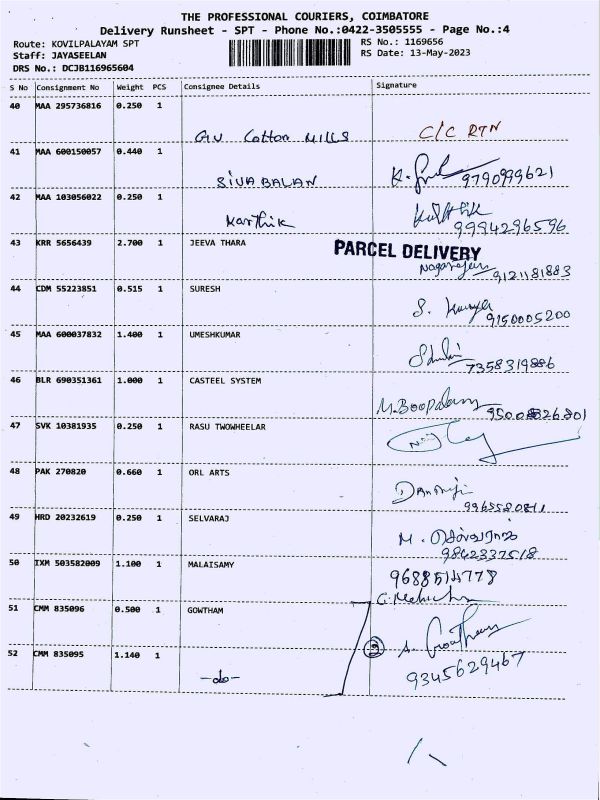 THE PROFESSIONAL COURIERS, COIMBATORE
Delivery Runsheet - SPT - Phone No.:0422-3505555 - Page No.:4
Route: KOVILPALAYAM SPT
RS No.: 1169656
Staff: JAYASEELAN
RS Date: 13-May-2023
DRS No.: DCJB116965604
S No Consignment No Weight PCS Consignee Details Signature
40 MAA 295736816 0.250 1
Cotton MILLS C/C RTN
41 MAA 600150057 0.440 1
SIVABALAN 9790999621
42 MAA 103056022 0.250 1
Karthik Karthik
9994296596
43 KRR 5656439 2.700 1 JEEVA THARA
PARCEL DELIVERY
Nagarajan 9121181883
44 CDM 55223851 0.515 1 SURESH
S. 9150005200
45 MAA 600037832 1.400 1 UMESHKUMAR
7358319886
46 BLR 690351361 1.000 1 CASTEEL SYSTEM
M.Boopalan
47 SVK 10381935 0.250 1 RASU TWOWHEELAR
48 PAK 270820 0.660 1 ORL ARTS
9965580811
49 HRD 20232619 0.250 1 SELVARAJ
M. செல்வராஜ்
9842337518
50 IXM 503582009 1.100 1 MALAISAMY
9688514778
51 CMM 835096 0.500 1 GOWTHAM
52 CMM 835095 1.140 1
-do-
2 A. Gowtham
9345629467